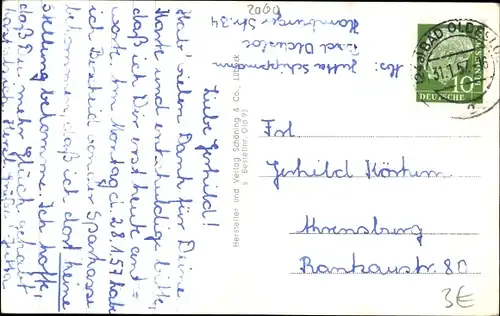 Liebe Gerhild!
Hab' vielen Dank für Deine
Karte und entschuldige bitte,
daß ich Dir erst heute ant=
worte. Am Montag d. 28.1.57 hab
ich Bescheid von der Sparkasse
bekommen, daß ich dort keine
Stellung bekomme. Ich hoffe,
daß Du mehr Glück gehabt
hast. Herzl. Grüße Jutta
Hersteller und Verlag Schöning & Co., Lübeck
Bestellnr. Old 95
Abs: Jutta Schippmann
Bad Oldesloe
Hamburger Str. 34
BAD OLDESLOE
31.1.57
10
DEUTSCHE
Frl.
Gerhild Körtum
Ahrensburg
Rantzaustr. 80
3€